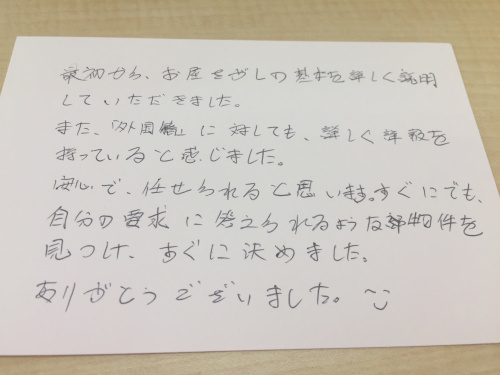 最初から、お屋さがしの基本を詳しく説明
していただきました。
また、「外国籍」に対しても、詳しく
持っていると感じました。
安心で、任せられると思います。すぐにでも、
自分の要求に答えられるような物件を
見つけ、すぐに決めました。
ありがとうございました。